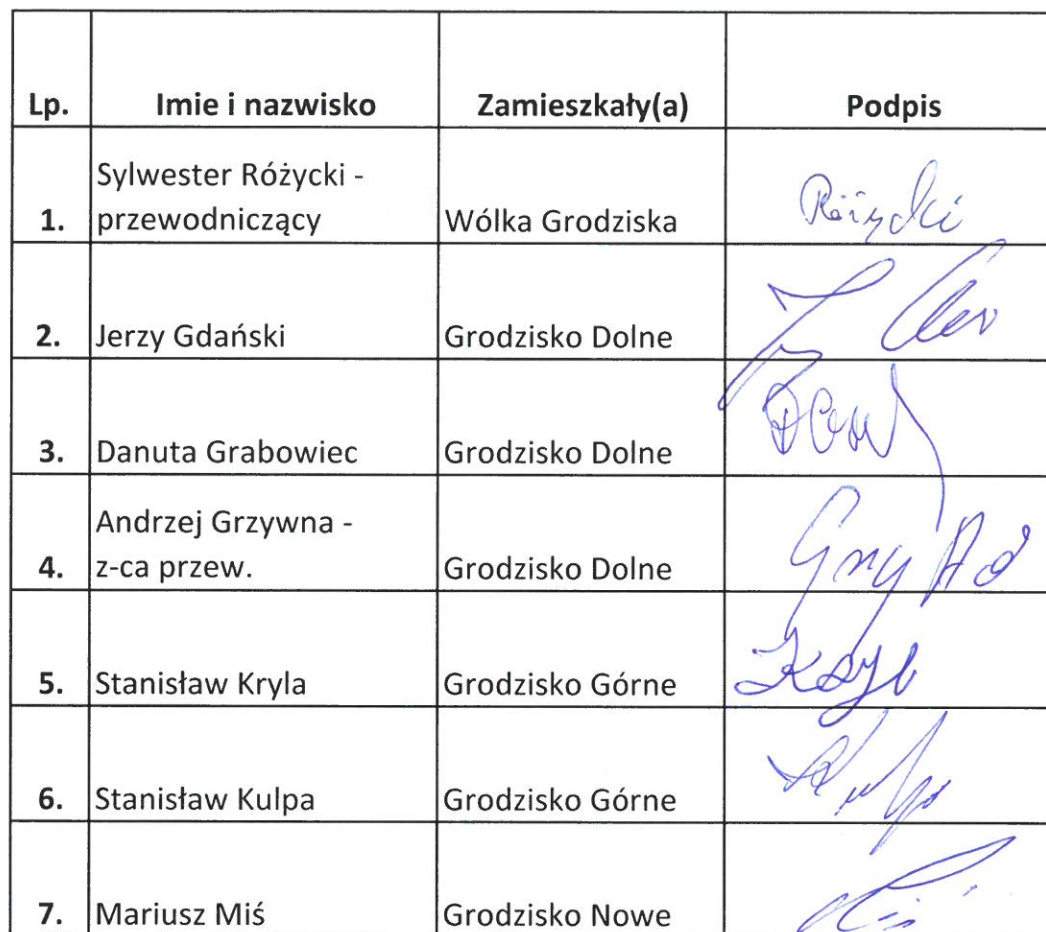 Lp. Imie i nazwisko Zamieszkały(a) Podpis
Sylwester Różycki -
1. przewodniczący Wólka Grodziska Różycki
2. Jerzy Gdański Grodzisko Dolne
3. Danuta Grabowiec Grodzisko Dolne
Andrzej Grzywna -
4. z-ca przew. Grodzisko Dolne
5. Stanisław Kryla Grodzisko Górne
6. Stanisław Kulpa Grodzisko Górne
7. Mariusz Miś Grodzisko Nowe